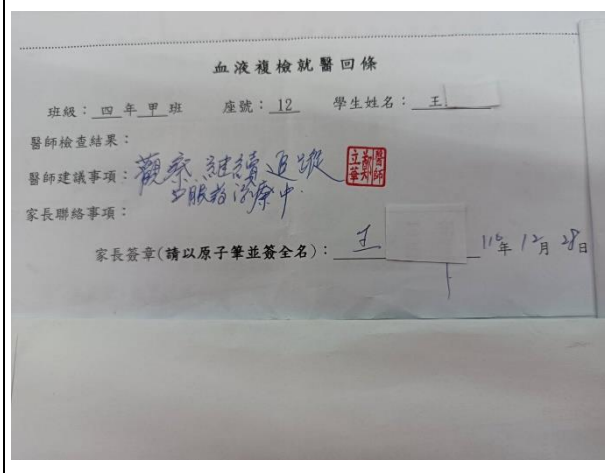 血液複檢就醫回條
班級：四年甲班 座號：12 學生姓名：王
醫師檢查結果：
醫師建議事項：觀察.繼續追蹤
療中.
醫師
家長聯絡事項：
家長簽章(請以原子筆並簽全名)：王 年12月28日